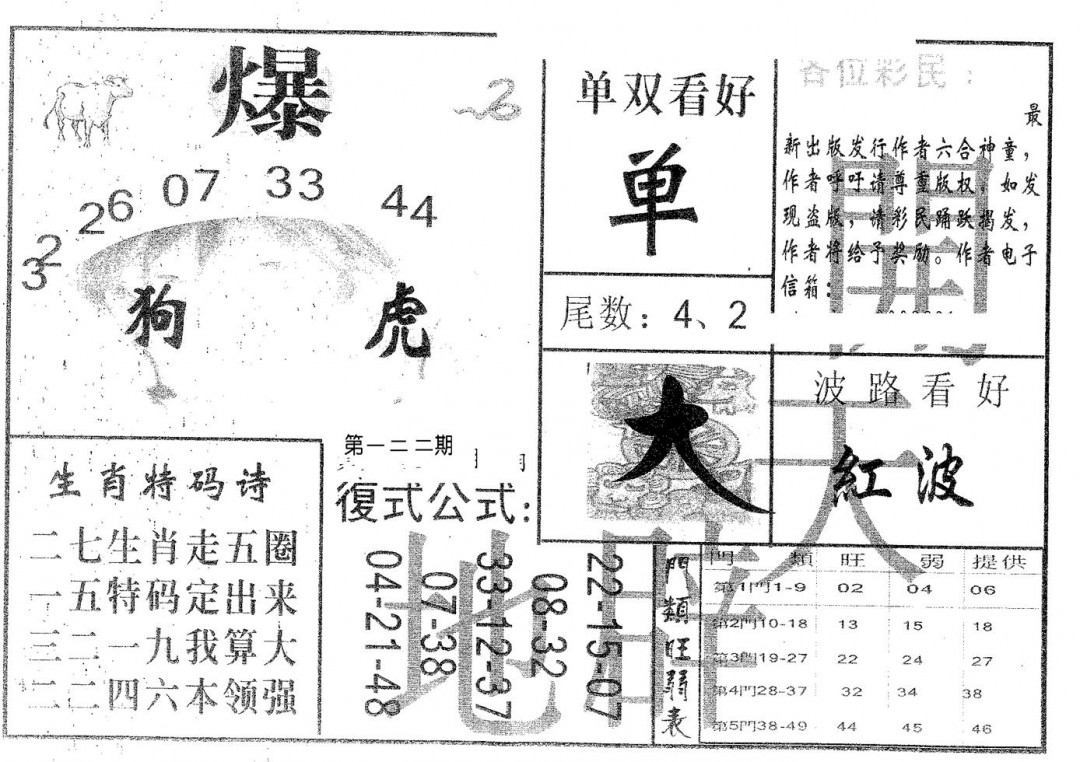 爆
32
26
07
33
44
狗 虎
单双看好
单
尾数：4、2
各位彩民：
最
新出版发行作者六合神童，
作者呼吁请尊重版权。如发
现盗版，情彩民踊跃揭发，
作者将给予奖励。作者电子
信箱：
大
波路看好
紅波
生肖特码诗
二七生肖走五圈
一五特码定出来
三二一九我算大
二二四六本领强
第一二二期
復式公式：
22-15-07
08-32
33-12-37
07-38
04-21-48
門類旺弱表
門 類 旺 弱 提供
第1門1-9 02 04 06
第2門10-18 13 15 18
第3門19-27 22 24 27
第4門28-37 32 34 38
第5門38-49 44 45 46